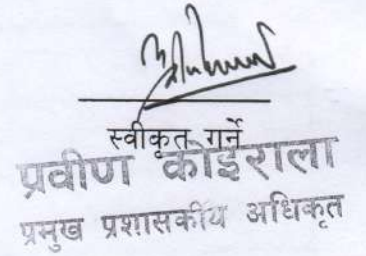 स्वीकृत गर्ने
प्रवीण कोइराला
प्रमुख प्रशासकीय अधिकृत